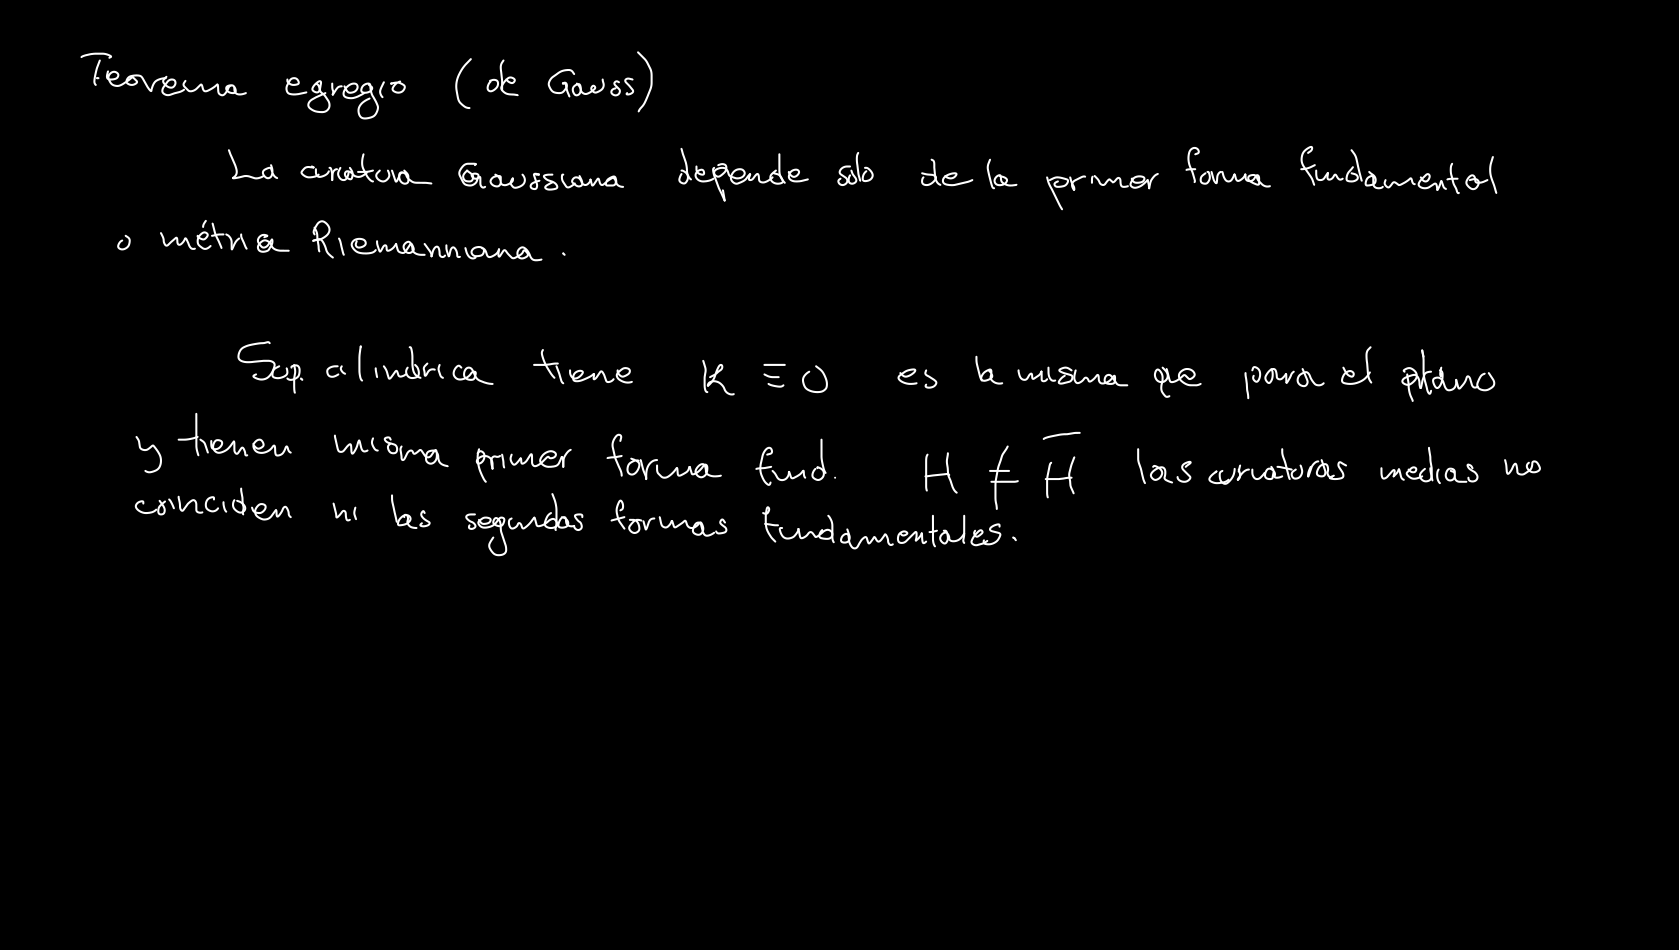 Teorema egregio (de Gauss)
La curvatura Gaussiana depende solo de la primer forma fundamental
o métrica Riemanniana.
Sup. cilíndrica tiene K ≡ 0 es la misma que para el plano
y tienen misma primer forma fund. H ≠ H̅ las curvaturas medias no
coinciden ni las segundas formas fundamentales.